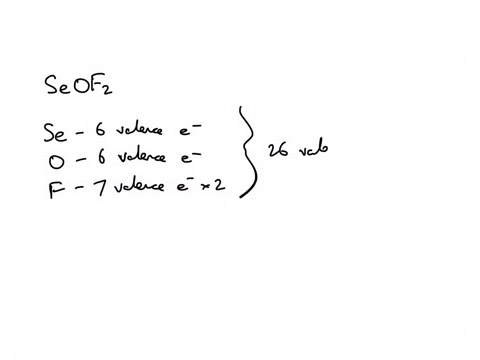 SeOF₂
Se - 6 valence e⁻
O - 6 valence e⁻
F - 7 valence e⁻ × 2
26 vale